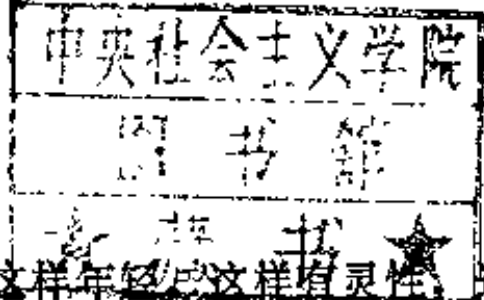 中央社会主义学院
图书馆
藏书★
这样年轻，这样有灵性，